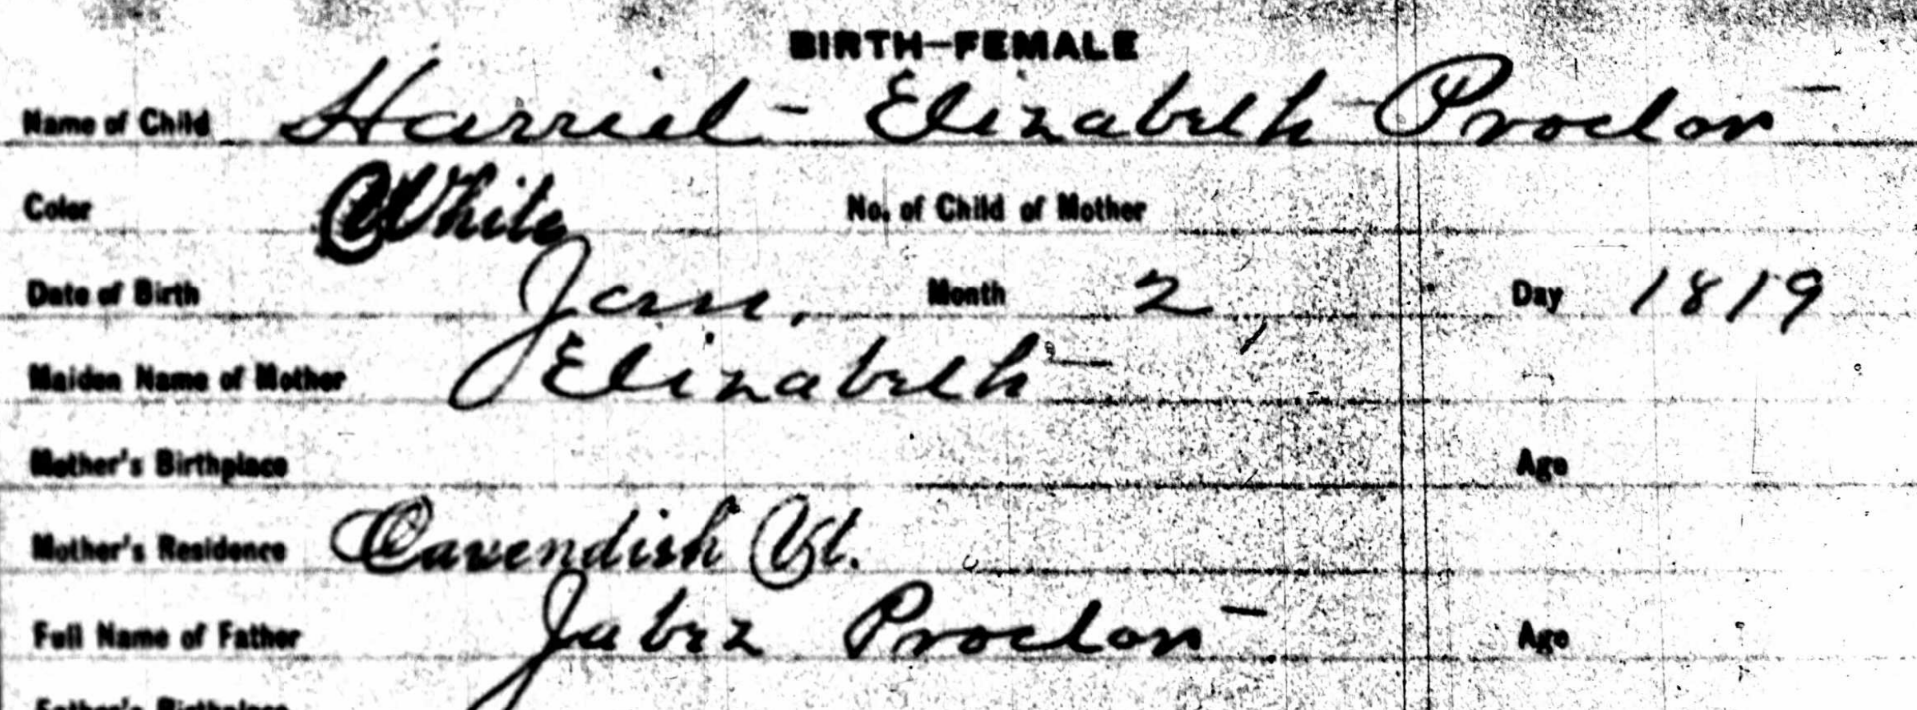 BIRTH—FEMALE
Name of Child Harriet Elizabeth Proctor
Color White No. of Child of Mother
Date of Birth Jan. Month 2, Day 1819
Maiden Name of Mother Elizabeth
Mother's Birthplace Age
Mother's Residence Cavendish Vt.
Full Name of Father Jabez Proctor Age
Father's Birthplace